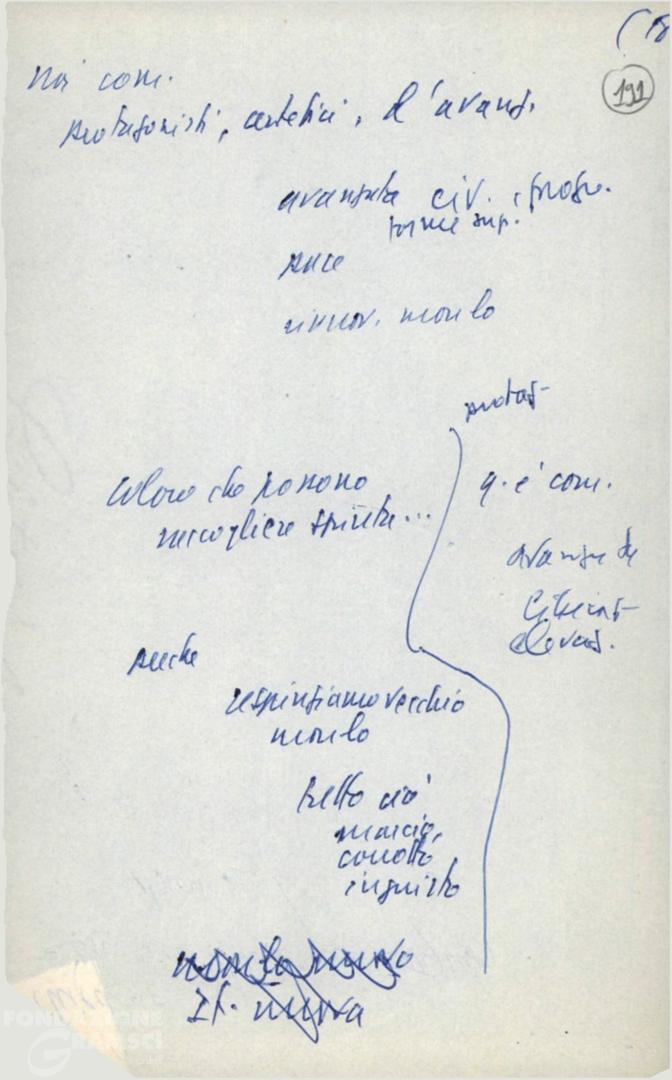 (18
191
noi com.
protagonisti, artefici, d'avang.
avanzata civ. e progr.
forme sup.
pace
rinnov. mondo
protag-
Coloro che possono
raccogliere spinte...
q. è com.
avanza de
elevaz.
perché
respingiamo vecchio
mondo
tutto ciò
marcio,
corrotto
ingiusto
mondo nuovo
It. nuova
FONDAZIONE
GRAMSCI